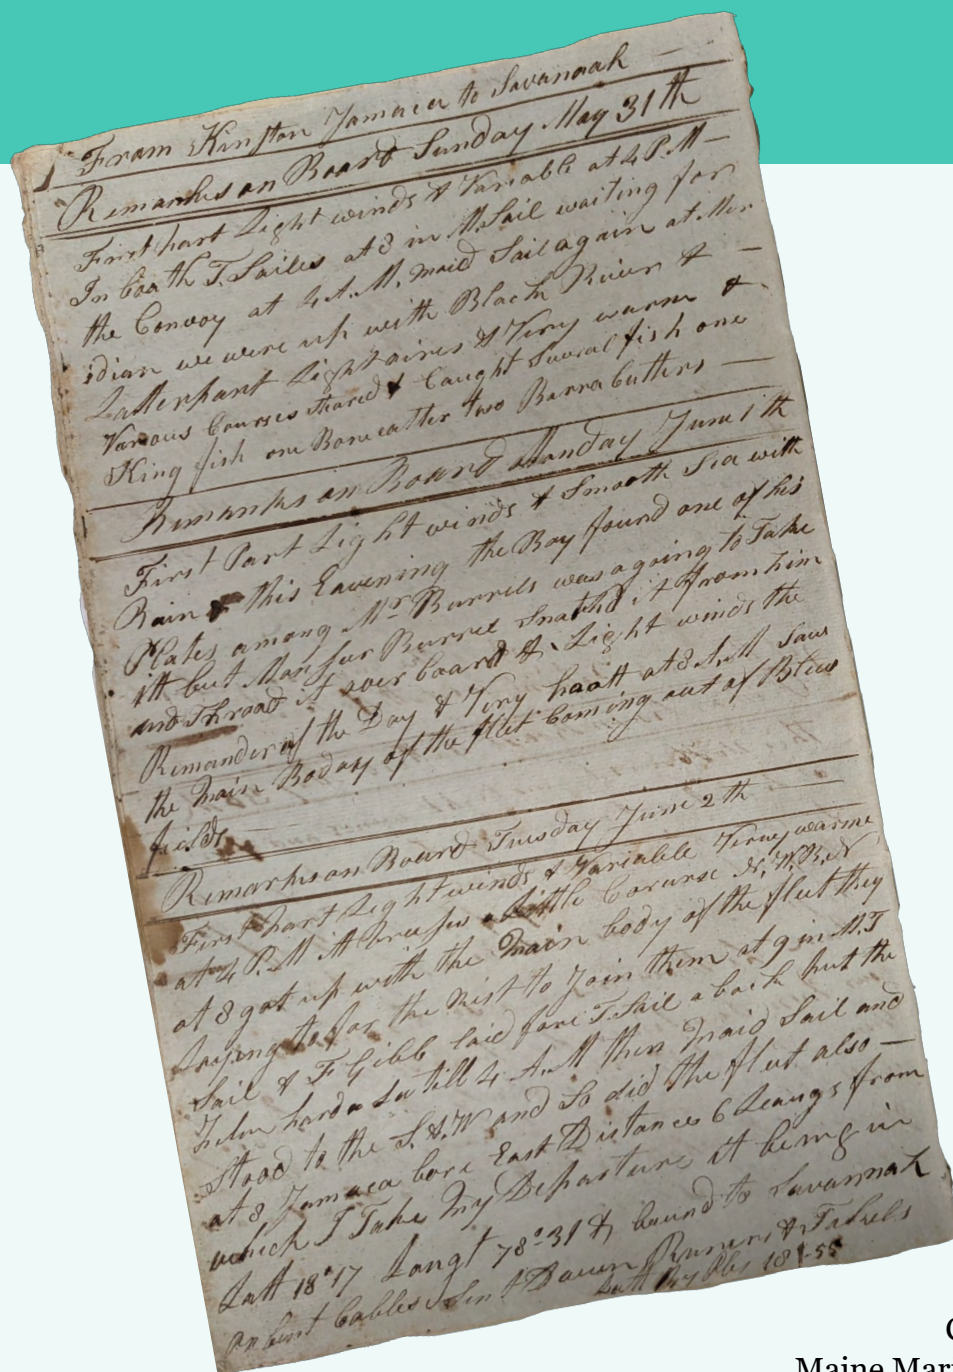 1 From Kingston Jamaica to Savannah
Remarks on Board Sunday May 31th
First part Light winds & Variable at 4 P.M
In boath T. Sailes at 8 in M. Sail waiting for
the Convoy at 4 A.M. maid Sail again at Mer
idian we were up with Black River &
Latter part Light aires & Very warm &
Various Courses steared & Caught Several fish one
King fish one Boneeatter two Barrabutters
Remarks on Board Monday June 1th
First Part Light winds & Smooth Sea with
Rain & this Eavening the Boy found one of his
Plates among Mr Burrels was agoing to Take
itt but Monsur Burrel Snatchd it from him
and Throad it over board & Light winds the
Remander of the Day & Very haott at 8 A.M Saw
the Main Boday of the fleet Coming out of Blew
fields
Remarks on Board Tuesday June 2th
First part Light winds & Variable Verey warme
at 4 P.M itt breases a Little Corurse N.W.B.N
at 8 got up with the Main body of the fleet they
Laying to for the Rest to Join them at 9 in M.T
Sail & F Gibb laid fore T Sail a back put the
helm hard a Lee till 4 A.M then Maid Sail and
stood to the S.&.W and So did the fleet also
at 8 Jamaca bore East Distance 6 Leaugs from
which I Take My Departure it being in
Latt 18°17 Longt 78°31 & bound to Savannah
on bent Cables Sent Down Runers & Takels
Latt By Obs 18-55
Maine Mar